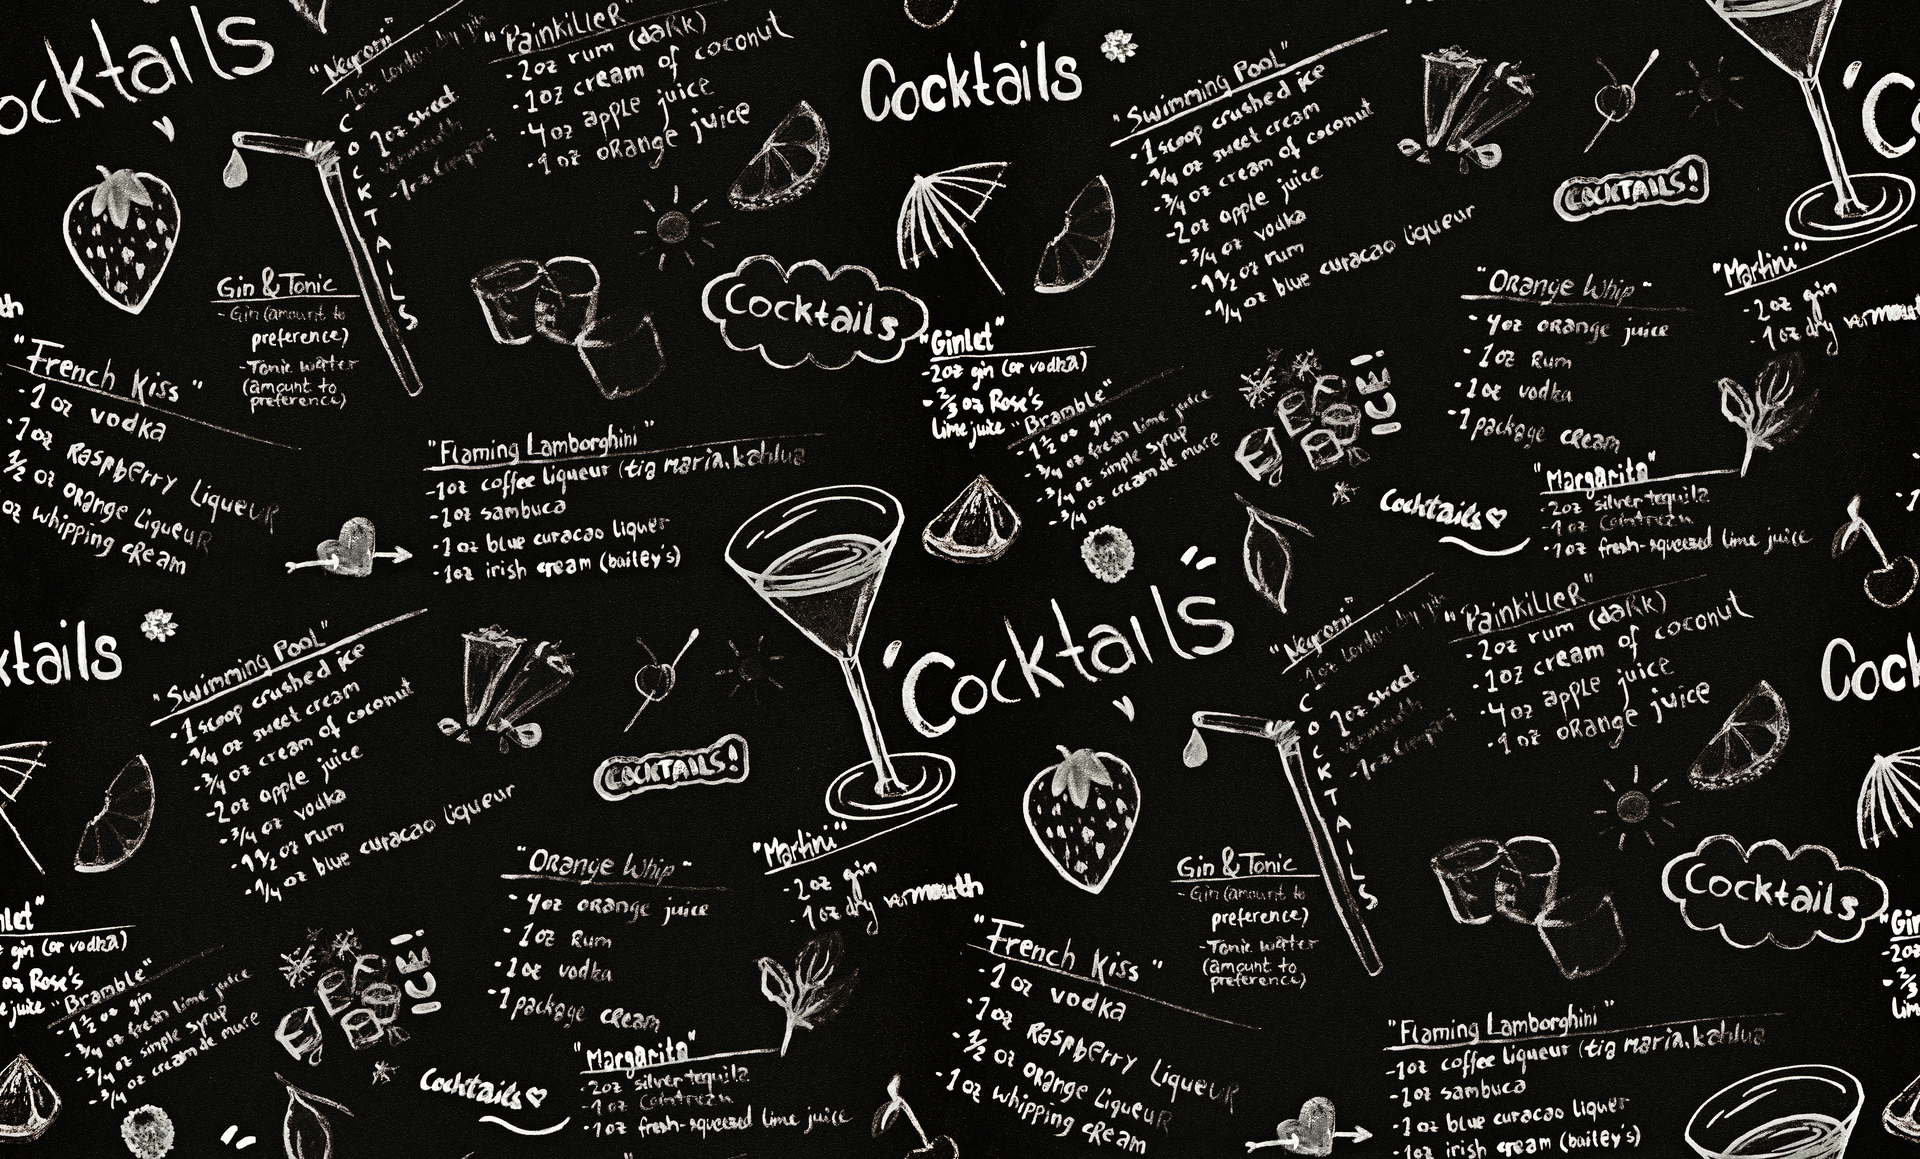 Cocktails
"Negroni"
-1oz London dry gin
1oz sweet
vermouth
-1oz Campari
"Painkiller"
-2oz rum (dark)
-1oz cream of coconut
-4oz apple juice
-1oz orange juice
COCKTAILS
Gin & Tonic
-Gin (amount to
preference)
-Tonic water
(amount to
preference)
th
"French Kiss"
-1 oz vodka
-1oz Raspberry Liqueur
1/2 oz orange Liqueur
oz whipping cream
Cocktails
"Flaming Lamborghini"
-1oz coffee liqueur (tia maria, kahlua
-1oz sambuca
-1oz blue curacao liquer
-1oz irish cream (bailey's)
Cocktails
"Swimming Pool"
-1scoop crushed ice
-1/4 oz sweet cream
-3/4 oz cream of coconut
-2oz apple juice
-3/4 oz vodka
-1 1/2 oz rum
-1/4 oz blue curacao liqueur
COCKTAILS!
"Ginlet"
-2oz gin (or vodka)
-2/3 oz Rose's
lime juice
"Bramble"
-1 1/2 oz gin
-3/4 oz fresh lime juice
-3/4 oz simple syrup
-3/4 oz cream de mure
ICE!
"Orange Whip-
-4oz orange juice
-1oz Rum
-1oz vodka
-1package cream
'Co
"Martini"
-2oz gin
-1oz dry vermouth
Cocktails
"Margarita"
-2oz silver tequila
-1oz Cointreau
-1oz fresh-squeezed lime juice
ktails
"Swimming Pool"
-1scoop crushed ice
-1/4 oz sweet cream
-3/4 oz cream of coconut
-2oz apple juice
-3/4 oz vodka
-1 1/2 oz rum
-1/4 oz blue curacao liqueur
COCKTAILS!
nlet"
gin (or vodka)
oz Rose's
e juice
"Bramble"
-1 1/2 oz gin
-3/4 oz fresh lime juice
-3/4 oz simple syrup
-3/4 oz cream de mure
ICE!
"Orange Whip-
-4oz orange juice
-1oz Rum
-1oz vodka
-1package cream
"Martini"
-2oz gin
-1oz dry vermouth
Cocktails
"Margarita"
-2oz silver tequila
-1oz Cointreau
-1oz fresh-squeezed lime juice
'Cocktails"
"Negroni"
-1oz London dry gin
1oz sweet
vermouth
-1oz Campari
"Painkiller"
-2oz rum (dark)
-1oz cream of coconut
-4oz apple juice
-1oz orange juice
COCKTAILS
Gin & Tonic
-Gin (amount to
preference)
-Tonic water
(amount to
preference)
"French Kiss"
-1 oz vodka
-1oz Raspberry Liqueur
-1/2 oz orange Liqueur
-1oz whipping cream
Cocktails
"Flaming Lamborghini"
-1oz coffee liqueur (tia maria, kahlua
-1oz sambuca
-1oz blue curacao liquer
-1oz irish cream (bailey's)
Cock
"Gin
-2oz
-2/3
lim